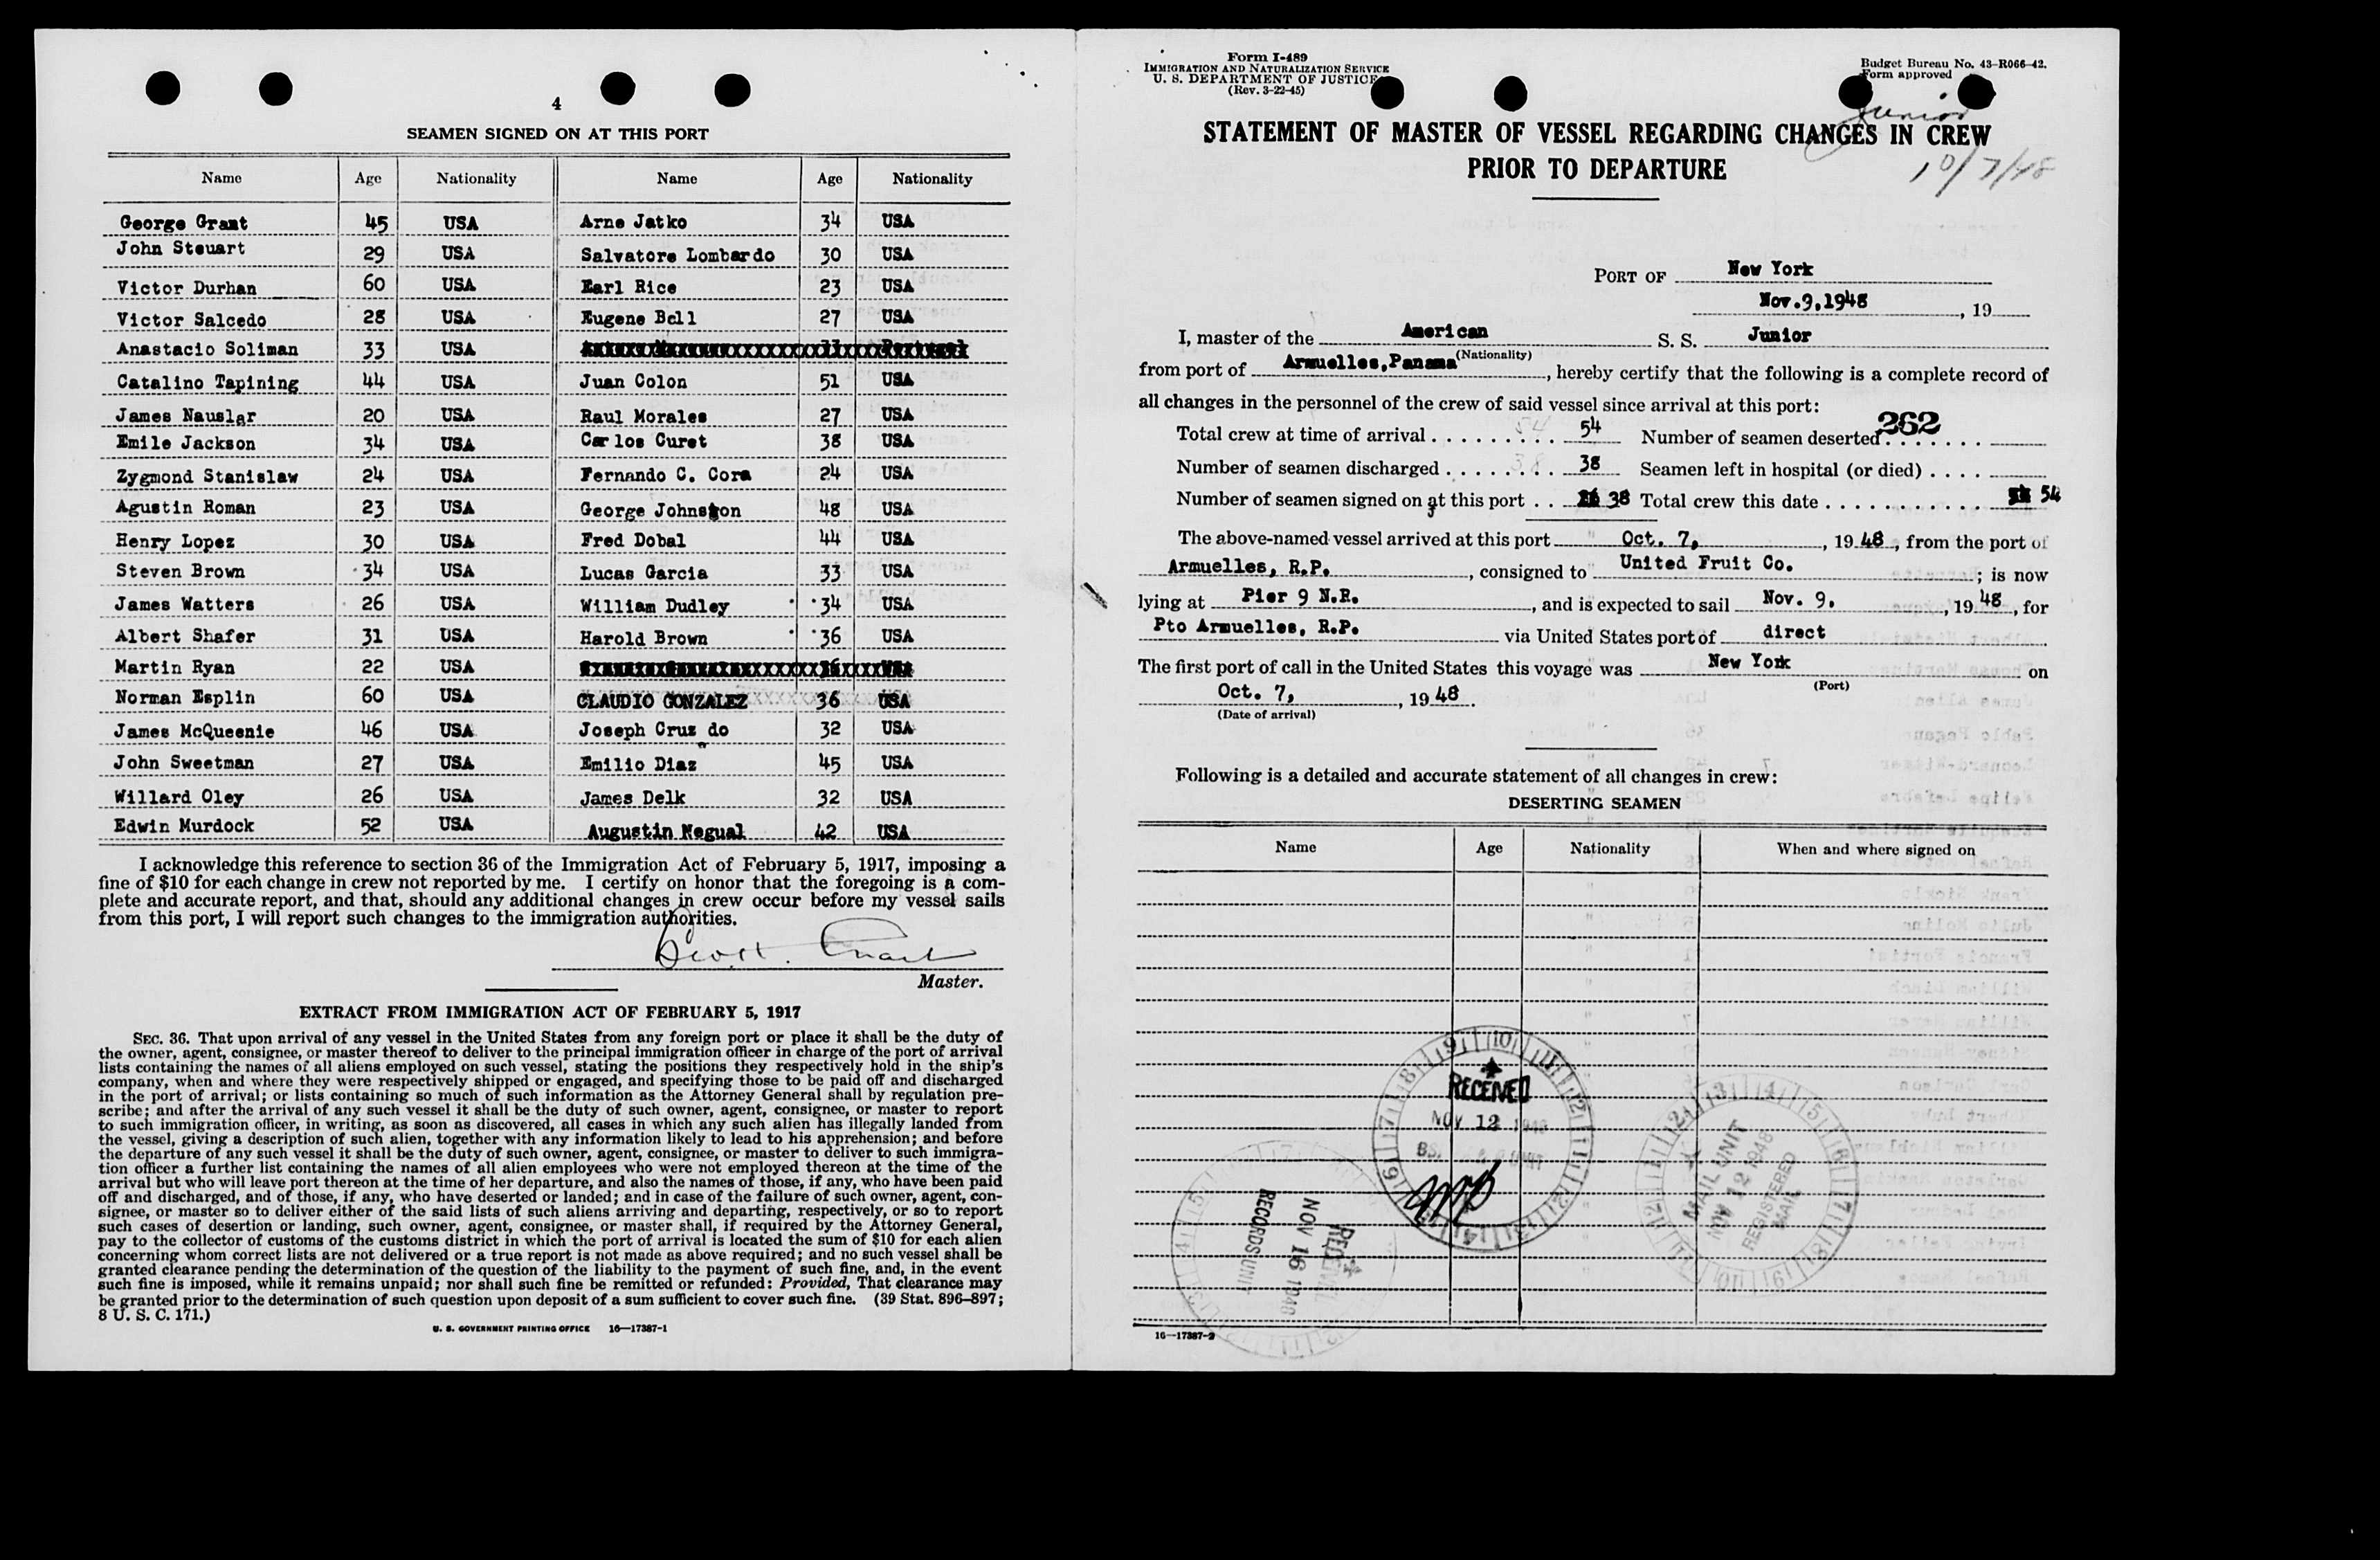 4
SEAMEN SIGNED ON AT THIS PORT
Name Age Nationality Name Age Nationality
George Grant 45 USA Arne Jatko 34 USA
John Steuart 29 USA Salvatore Lombardo 30 USA
Victor Durhan 60 USA Earl Rice 23 USA
Victor Salcedo 28 USA Eugene Bell 27 USA
Anastacio Soliman 33 USA
Catalino Tapining 44 USA Juan Colon 51 USA
James Nauslar 20 USA Raul Morales 27 USA
Emile Jackson 34 USA Carlos Curet 38 USA
Zygmond Stanislaw 24 USA Fernando C. Cora 24 USA
Agustin Roman 23 USA George Johnston 48 USA
Henry Lopez 30 USA Fred Dobal 44 USA
Steven Brown 34 USA Lucas Garcia 33 USA
James Watters 26 USA William Dudley 34 USA
Albert Shafer 31 USA Harold Brown 36 USA
Martin Ryan 22 USA
Norman Esplin 60 USA CLAUDIO GONZALEZ 36 USA
James McQueenie 46 USA Joseph Cruz do 32 USA
John Sweetman 27 USA Emilio Diaz 45 USA
Willard Oley 26 USA James Delk 32 USA
Edwin Murdock 52 USA Augustin Negual 42 USA
I acknowledge this reference to section 36 of the Immigration Act of February 5, 1917, imposing a
fine of $10 for each change in crew not reported by me. I certify on honor that the foregoing is a com-
plete and accurate report, and that, should any additional changes in crew occur before my vessel sails
from this port, I will report such changes to the immigration authorities.
Master.
EXTRACT FROM IMMIGRATION ACT OF FEBRUARY 5, 1917
SEC. 36. That upon arrival of any vessel in the United States from any foreign port or place it shall be the duty of
the owner, agent, consignee, or master thereof to deliver to the principal immigration officer in charge of the port of arrival
lists containing the names of all aliens employed on such vessel, stating the positions they respectively hold in the ship's
company, when and where they were respectively shipped or engaged, and specifying those to be paid off and discharged
in the port of arrival; or lists containing so much of such information as the Attorney General shall by regulation pre-
scribe; and after the arrival of any such vessel it shall be the duty of such owner, agent, consignee, or master to report
to such immigration officer, in writing, as soon as discovered, all cases in which any such alien has illegally landed from
the vessel, giving a description of such alien, together with any information likely to lead to his apprehension; and before
the departure of any such vessel it shall be the duty of such owner, agent, consignee, or master to deliver to such immigra-
tion officer a further list containing the names of all alien employees who were not employed thereon at the time of the
arrival but who will leave port thereon at the time of her departure, and also the names of those, if any, who have been paid
off and discharged, and of those, if any, who have deserted or landed; and in case of the failure of such owner, agent, con-
signee, or master so to deliver either of the said lists of such aliens arriving and departing, respectively, or so to report
such cases of desertion or landing, such owner, agent, consignee, or master shall, if required by the Attorney General,
pay to the collector of customs of the customs district in which the port of arrival is located the sum of $10 for each alien
concerning whom correct lists are not delivered or a true report is not made as above required; and no such vessel shall be
granted clearance pending the determination of the question of the liability to the payment of such fine, and, in the event
such fine is imposed, while it remains unpaid; nor shall such fine be remitted or refunded: Provided, That clearance may
be granted prior to the determination of such question upon deposit of a sum sufficient to cover such fine. (39 Stat. 896-897;
8 U. S. C. 171.)
U. S. GOVERNMENT PRINTING OFFICE 16—17387-1
Form I-489
IMMIGRATION AND NATURALIZATION SERVICE
U. S. DEPARTMENT OF JUSTICE
(Rev. 3-22-45)
Budget Bureau No. 43-R066-42.
Form approved
Junior
STATEMENT OF MASTER OF VESSEL REGARDING CHANGES IN CREW
PRIOR TO DEPARTURE
10/7/48
PORT OF New York
Nov.9,1948, 19
I, master of the American S. S. Junior
(Nationality)
from port of Armuelles,Panama, hereby certify that the following is a complete record of
all changes in the personnel of the crew of said vessel since arrival at this port:
262
Total crew at time of arrival 54 54 Number of seamen deserted
Number of seamen discharged 38 38 Seamen left in hospital (or died)
Number of seamen signed on at this port 38 Total crew this date 54
The above-named vessel arrived at this port Oct. 7, 1948, from the port of
Armuelles, R.P., consigned to United Fruit Co.; is now
lying at Pier 9 N.R., and is expected to sail Nov. 9, 1948, for
Pto Armuelles, R.P. via United States port of direct
The first port of call in the United States this voyage was New York on
(Port)
Oct. 7, 1948.
(Date of arrival)
Following is a detailed and accurate statement of all changes in crew:
DESERTING SEAMEN
Name Age Nationality When and where signed on
RECEIVED
NOV 12 1948
MAIL UNIT
NOV 12 1948
REGISTERED
MAIL
RECEIVED
NOV 16 1948
RECORDS UNIT
16—17387-2